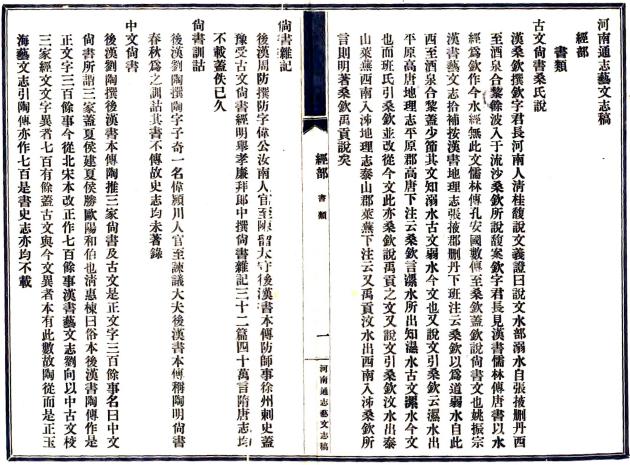 河南通志藝文志稿
經部
書類
古文尙書桑氏說
漢桑欽撰欽字君長河南人淸桂馥說文義證曰說文水部溺水自張掖刪丹西
至酒泉合黎餘波入于流沙桑欽所說馥案欽字君長見漢書儒林傳唐書以水
經爲欽作今水經無此文儒林傳孔安國數傳至桑欽蓋欽說尙書文也姚振宗
漢書藝文志拾補按漢書地理志張掖郡刪丹下班注云桑欽以爲道弱水自此
西至酒泉合黎蓋少節其文知溺水古文弱水今文也又說文引桑欽云濕水出
平原高唐地理志平原郡高唐下注云桑欽言漯水所出知濕水古文漯水今文
也而班氏引桑欽並改從今文此亦桑欽說禹貢之文又說文引桑欽汶水出泰
山萊蕪西南入泲地理志泰山郡萊蕪下注云又禹貢汶水出西南入泲桑欽所
言則明著桑欽禹貢說矣
經部
書類
一
河南通志藝文志稿
尙書雜記
後漢周防撰防字偉公汝南人官至陳留太守後漢書本傳防師事徐州刺史蓋
豫受古文尙書經明舉孝廉拜郎中撰尙書雜記三十二篇四十萬言隋唐志均
不載蓋佚已久
尙書訓詁
後漢劉陶撰陶字子奇一名偉潁川人官至諫議大夫後漢書本傳稱陶明尙書
春秋爲之訓詁其書不傳故史志均未著錄
中文尙書
後漢劉陶撰後漢書本傳陶推三家尙書及古文是正文字三百餘事名曰中文
尙書所謂三家蓋夏侯建夏侯勝歐陽和伯也淸惠棟曰俗本後漢書陶傳作是
正文字三百餘事今從北宋本改正作七百餘事漢書藝文志劉向以中古文校
三家經文文字異者七百有餘蓋古文與今文異者本有此數故陶從而是正玉
海藝文志引陶傳亦作七百是書史志亦均不載